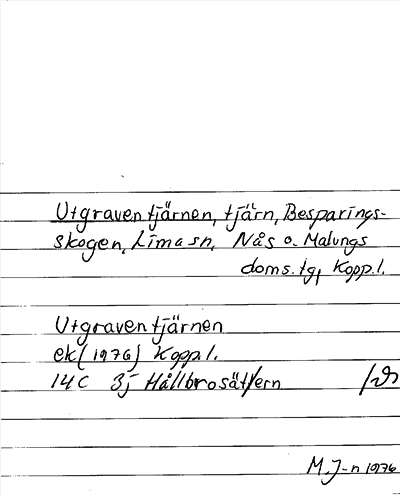 Utgraventjärnen, tjärn, Besparings-
skogen, Lima sn, Nås o. Malungs
doms.tg, Kopp.l.
Utgraventjärnen
ek (1976) Kopp.l.
14C 3j Hållbrosättern
M.J-n 1976